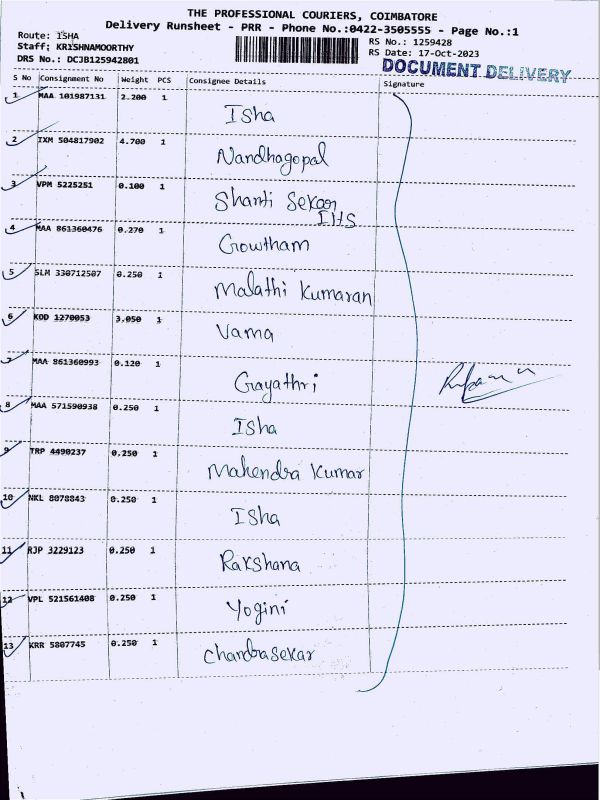 THE PROFESSIONAL COURIERS, COIMBATORE
Delivery Runsheet - PRR - Phone No.:0422-3505555 - Page No.:1
Route: ISHA
RS No.: 1259428
Staff: KRISHNAMOORTHY
RS Date: 17-Oct-2023
DRS No.: DCJB125942801
DOCUMENT DELIVERY
S No Consignment No Weight PCS Consignee Details Signature
1 MAA 101987131 2.200 1
Isha
2 IXM 504817902 4.700 1
Nandhagopal
3 VPM 5225251 0.100 1
Shanti Sekar
IHS
4 MAA 861360476 0.270 1
Gowtham
5 SLM 330712507 0.250 1
Malathi Kumaran
6 KOD 1270053 3.050 1
Vama
7 MAA 861360993 0.120 1
Gayathri
8 MAA 571590938 0.250 1
Isha
9 TRP 4490237 0.250 1
Mahendra Kumar
10 NKL 8078843 0.250 1
Isha
11 RJP 3229123 0.250 1
Rakshana
12 VPL 521561408 0.250 1
Yogini
13 KRR 5807745 0.250 1
Chandrasekar